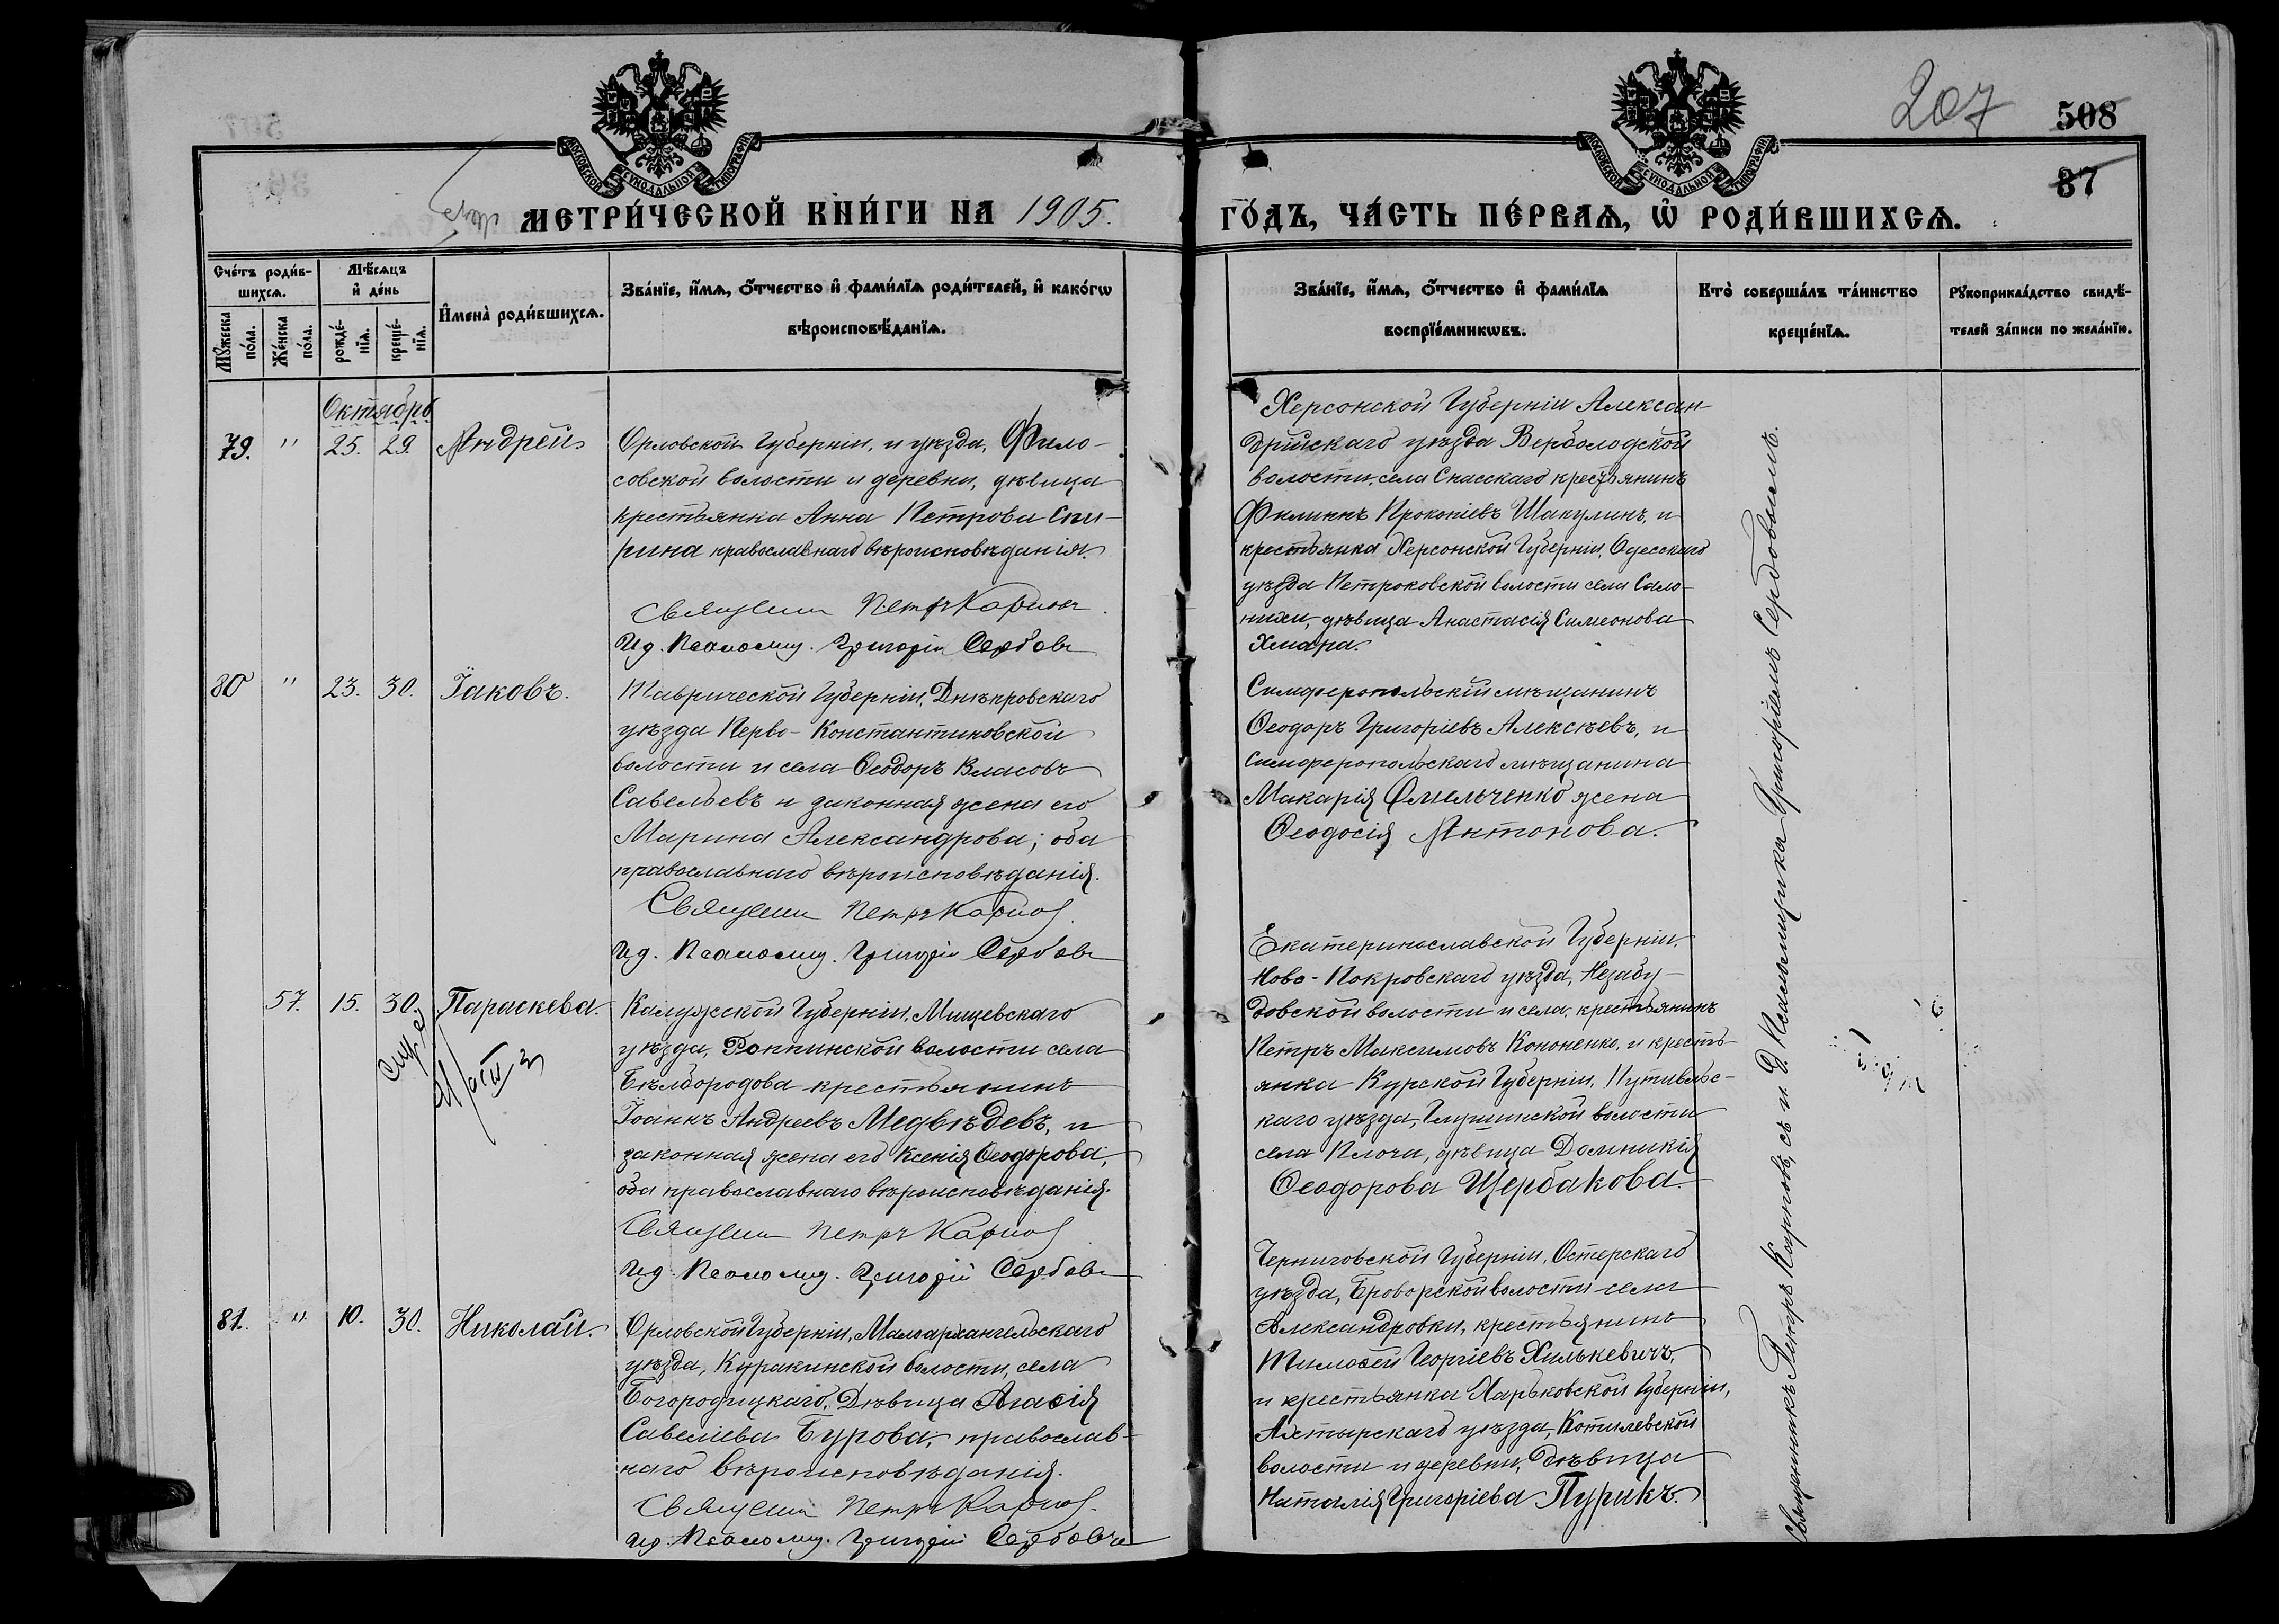 207
508
87
МОСКОВСКОЙ СѴНОДАЛЬНОЙ ТИПОГРАФІИ
МОСКОВСКОЙ СѴНОДАЛЬНОЙ ТИПОГРАФІИ
МЕТРИ́ЧЕСКОЙ КНИ́ГИ НА 1905. ГО́ДЪ, ЧА́СТЬ ПЕ́РВАѦ, Ѡ҆ РОДИ́ВШИХСѦ.
Сче́тъ роди́в-
шихсѧ.
Мѣ́сѧцъ
и҆ де́нь
Мꙋ́жеска по́ла.
Же́нска по́ла.
рожде́-
нїѧ.
креще́-
нїѧ.
И҆мена̀ роди́вшихсѧ.
Зва́нїе, и҆́мѧ, ѻ҆́тчество и҆ фами́лїѧ роди́телей, и҆ како́гѡ
вѣроисповѣ́данїѧ.
Зва́нїе, и҆́мѧ, ѻ҆́тчество и҆ фами́лїѧ
воспрїе́мникѡвъ.
Кто̀ соверша́лъ та́инство
креще́нїѧ.
Рꙋкоприкла́дство свидѣ́-
телей за́писи по жела́нїю.
Октябрь
79. " 25. 29. Андрей
Орловской Губерніи, и уѣзда, Фило-
совской волости и деревни, дѣвица
крестьянка Анна Петрова Спи-
рина православнаго вѣроисповѣданія.
Священн Петръ Карпов
И д. Псаломщ. Григорій Сердовъ
Херсонской Губерніи Алексан-
дрійскаго уѣзда Верболодской
волости, села Спасскаго крестьянинъ
Филиппъ Прокопіевъ Шакулинъ, и
крестьянка Херсонской Губерніи, Одесскаго
уѣзда Петроковской волости села Сало-
нихи, дѣвица Анастасія Симеонова
Хмара.
80 " 23. 30. Іаковъ.
Таврической Губерніи, Днѣпровскаго
уѣзда Перво-Константиновской
волости и села Ѳеодоръ Власовъ
Савельевъ и законная жена его
Марина Александрова; оба
православнаго вѣроисповѣданія.
Священн Петръ Карпов
И д. Псаломщ. Григорій Сердовъ
Симферопольскій мѣщанинъ
Ѳеодоръ Григоріевъ Алексѣевъ, и
Симферопольскаго мѣщанина
Макарія Омельченко жена
Ѳеодосія Антонова.
57. 15. 30. Параскева.
Калужской Губерніи, Мищевскаго
уѣзда, Роппинской волости села
Бѣлбородова крестьянинъ
Іоаннъ Андреевъ Медвѣдевъ, и
законная жена его Ксенія Ѳеодорова,
оба православнаго вѣроисповѣданія.
Священн Петръ Карпов
И д. Псаломщ. Григорій Сердовъ
Екатеринославской Губерніи,
Ново-Покровскаго уѣзда, Незабу-
довской волости и села, крестьянинъ
Петръ Максимовъ Кононенко, и кресть-
янка Курской Губерніи, Путивльс-
каго уѣзда, Глушинской волости
села Клоча, дѣвица Домникія
Ѳеодорова Щербакова.
81. " 10. 30. Николай.
Орловской Губерніи, Малоархангельскаго
уѣзда, Куракинской волости, села
Богородицкаго, Дѣвица
Савеліева Бурова, православ-
наго вѣроисповѣданія.
Священн Петръ Карпов.
И д. Псаломщ. Григорій Сердовъ
Черниговской Губерніи, Остерскаго
уѣзда, Броворской волости села
Александровки, крестьянинъ
Тимоѳей Георгіевъ Хилькевичъ,
и крестьянка Харьковской Губерніи,
Ахтырскаго уѣзда, Котилевской
волости и деревни, дѣвица
Наталія Григоріева Пурикъ.
Священникъ Петръ Карповъ, съ и. д. Псаломщика Григоріемъ Сердовымъ.